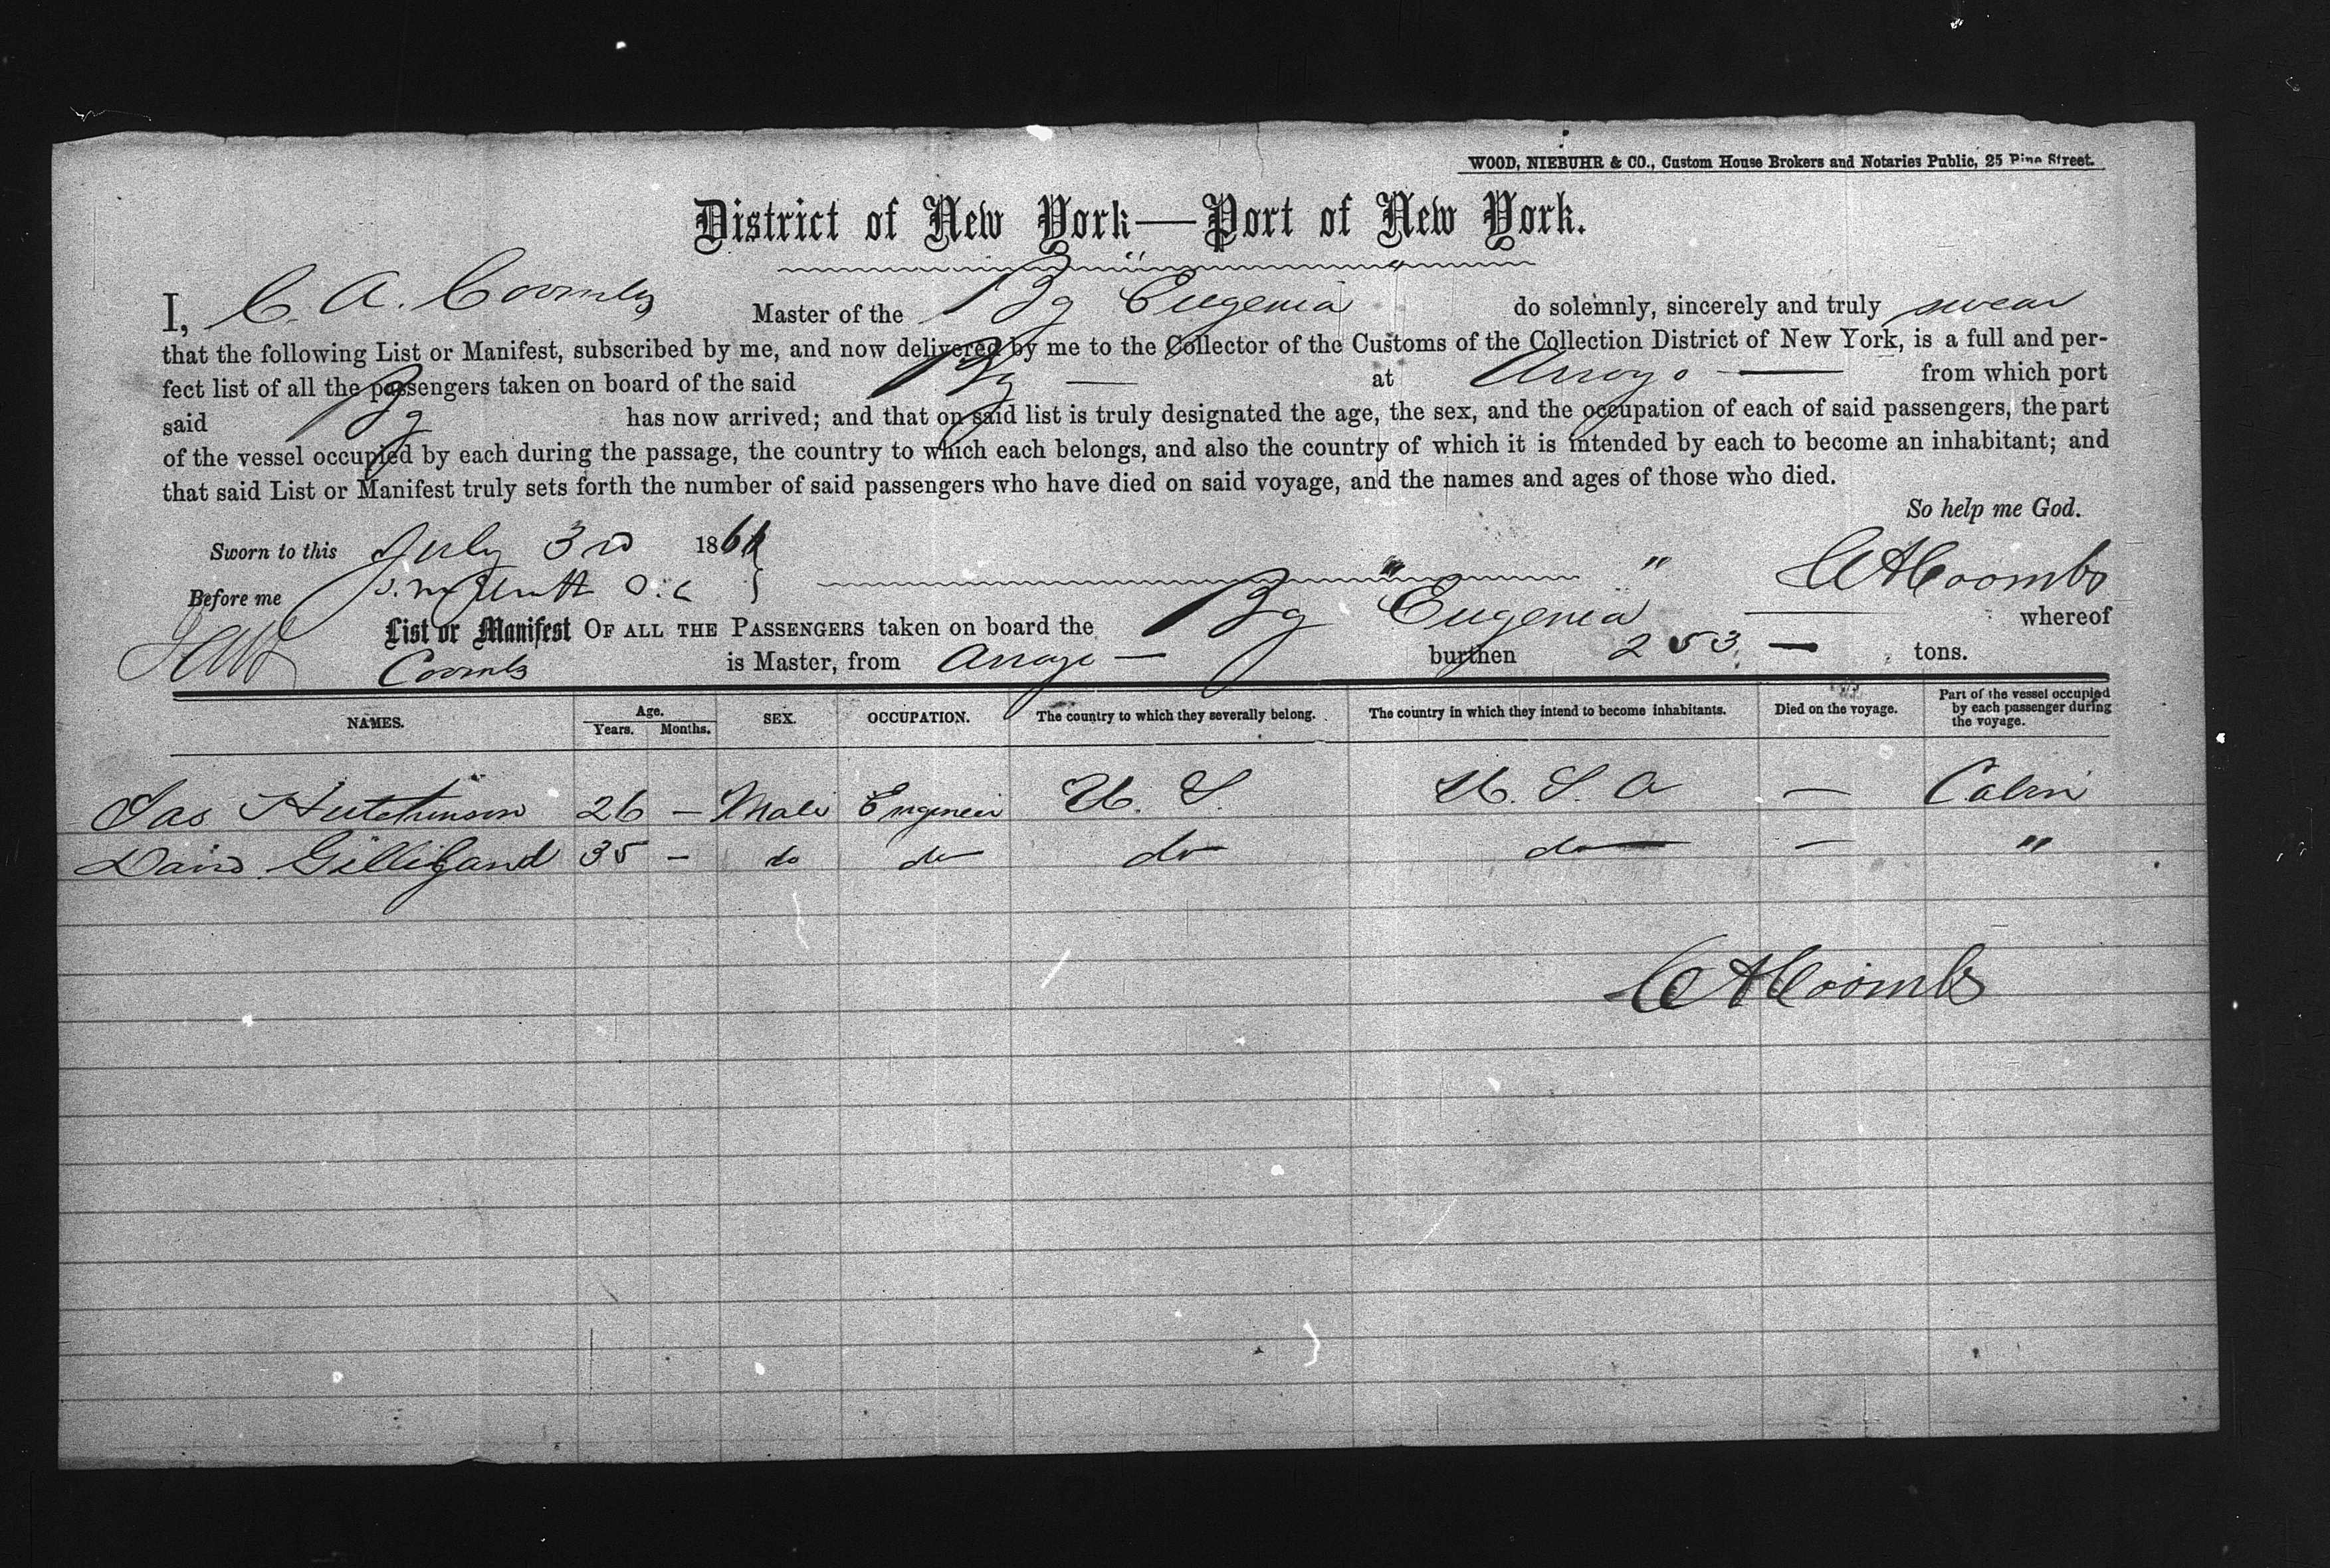 WOOD, NIEBUHR & CO., Custom House Brokers and Notaries Public, 25 Pine Street.
District of New York—Port of New York.
I, C. A. Coombs Master of the Bg Eugenia do solemnly, sincerely and truly swear
that the following List or Manifest, subscribed by me, and now delivered by me to the Collector of the Customs of the Collection District of New York, is a full and per-
fect list of all the passengers taken on board of the said Bg — at Arroyo — from which port
said Bg has now arrived; and that on said list is truly designated the age, the sex, and the occupation of each of said passengers, the part
of the vessel occupied by each during the passage, the country to which each belongs, and also the country of which it is intended by each to become an inhabitant; and
that said List or Manifest truly sets forth the number of said passengers who have died on said voyage, and the names and ages of those who died.
So help me God.
Sworn to this July 3rd 1866
Before me
C A Coombs
List or Manifest OF ALL THE PASSENGERS taken on board the Bg Eugenia whereof
Coombs is Master, from Arroyo — burthen 253 — tons.
NAMES. Age. Years. Months. SEX. OCCUPATION. The country to which they severally belong. The country in which they intend to become inhabitants. Died on the voyage. Part of the vessel occupied by each passenger during the voyage.
Jas Hutchinson 26 — Male Engineer U. S. U. S. A — Cabin
David Gilligand 35 — do do do do — "
C A Coombs